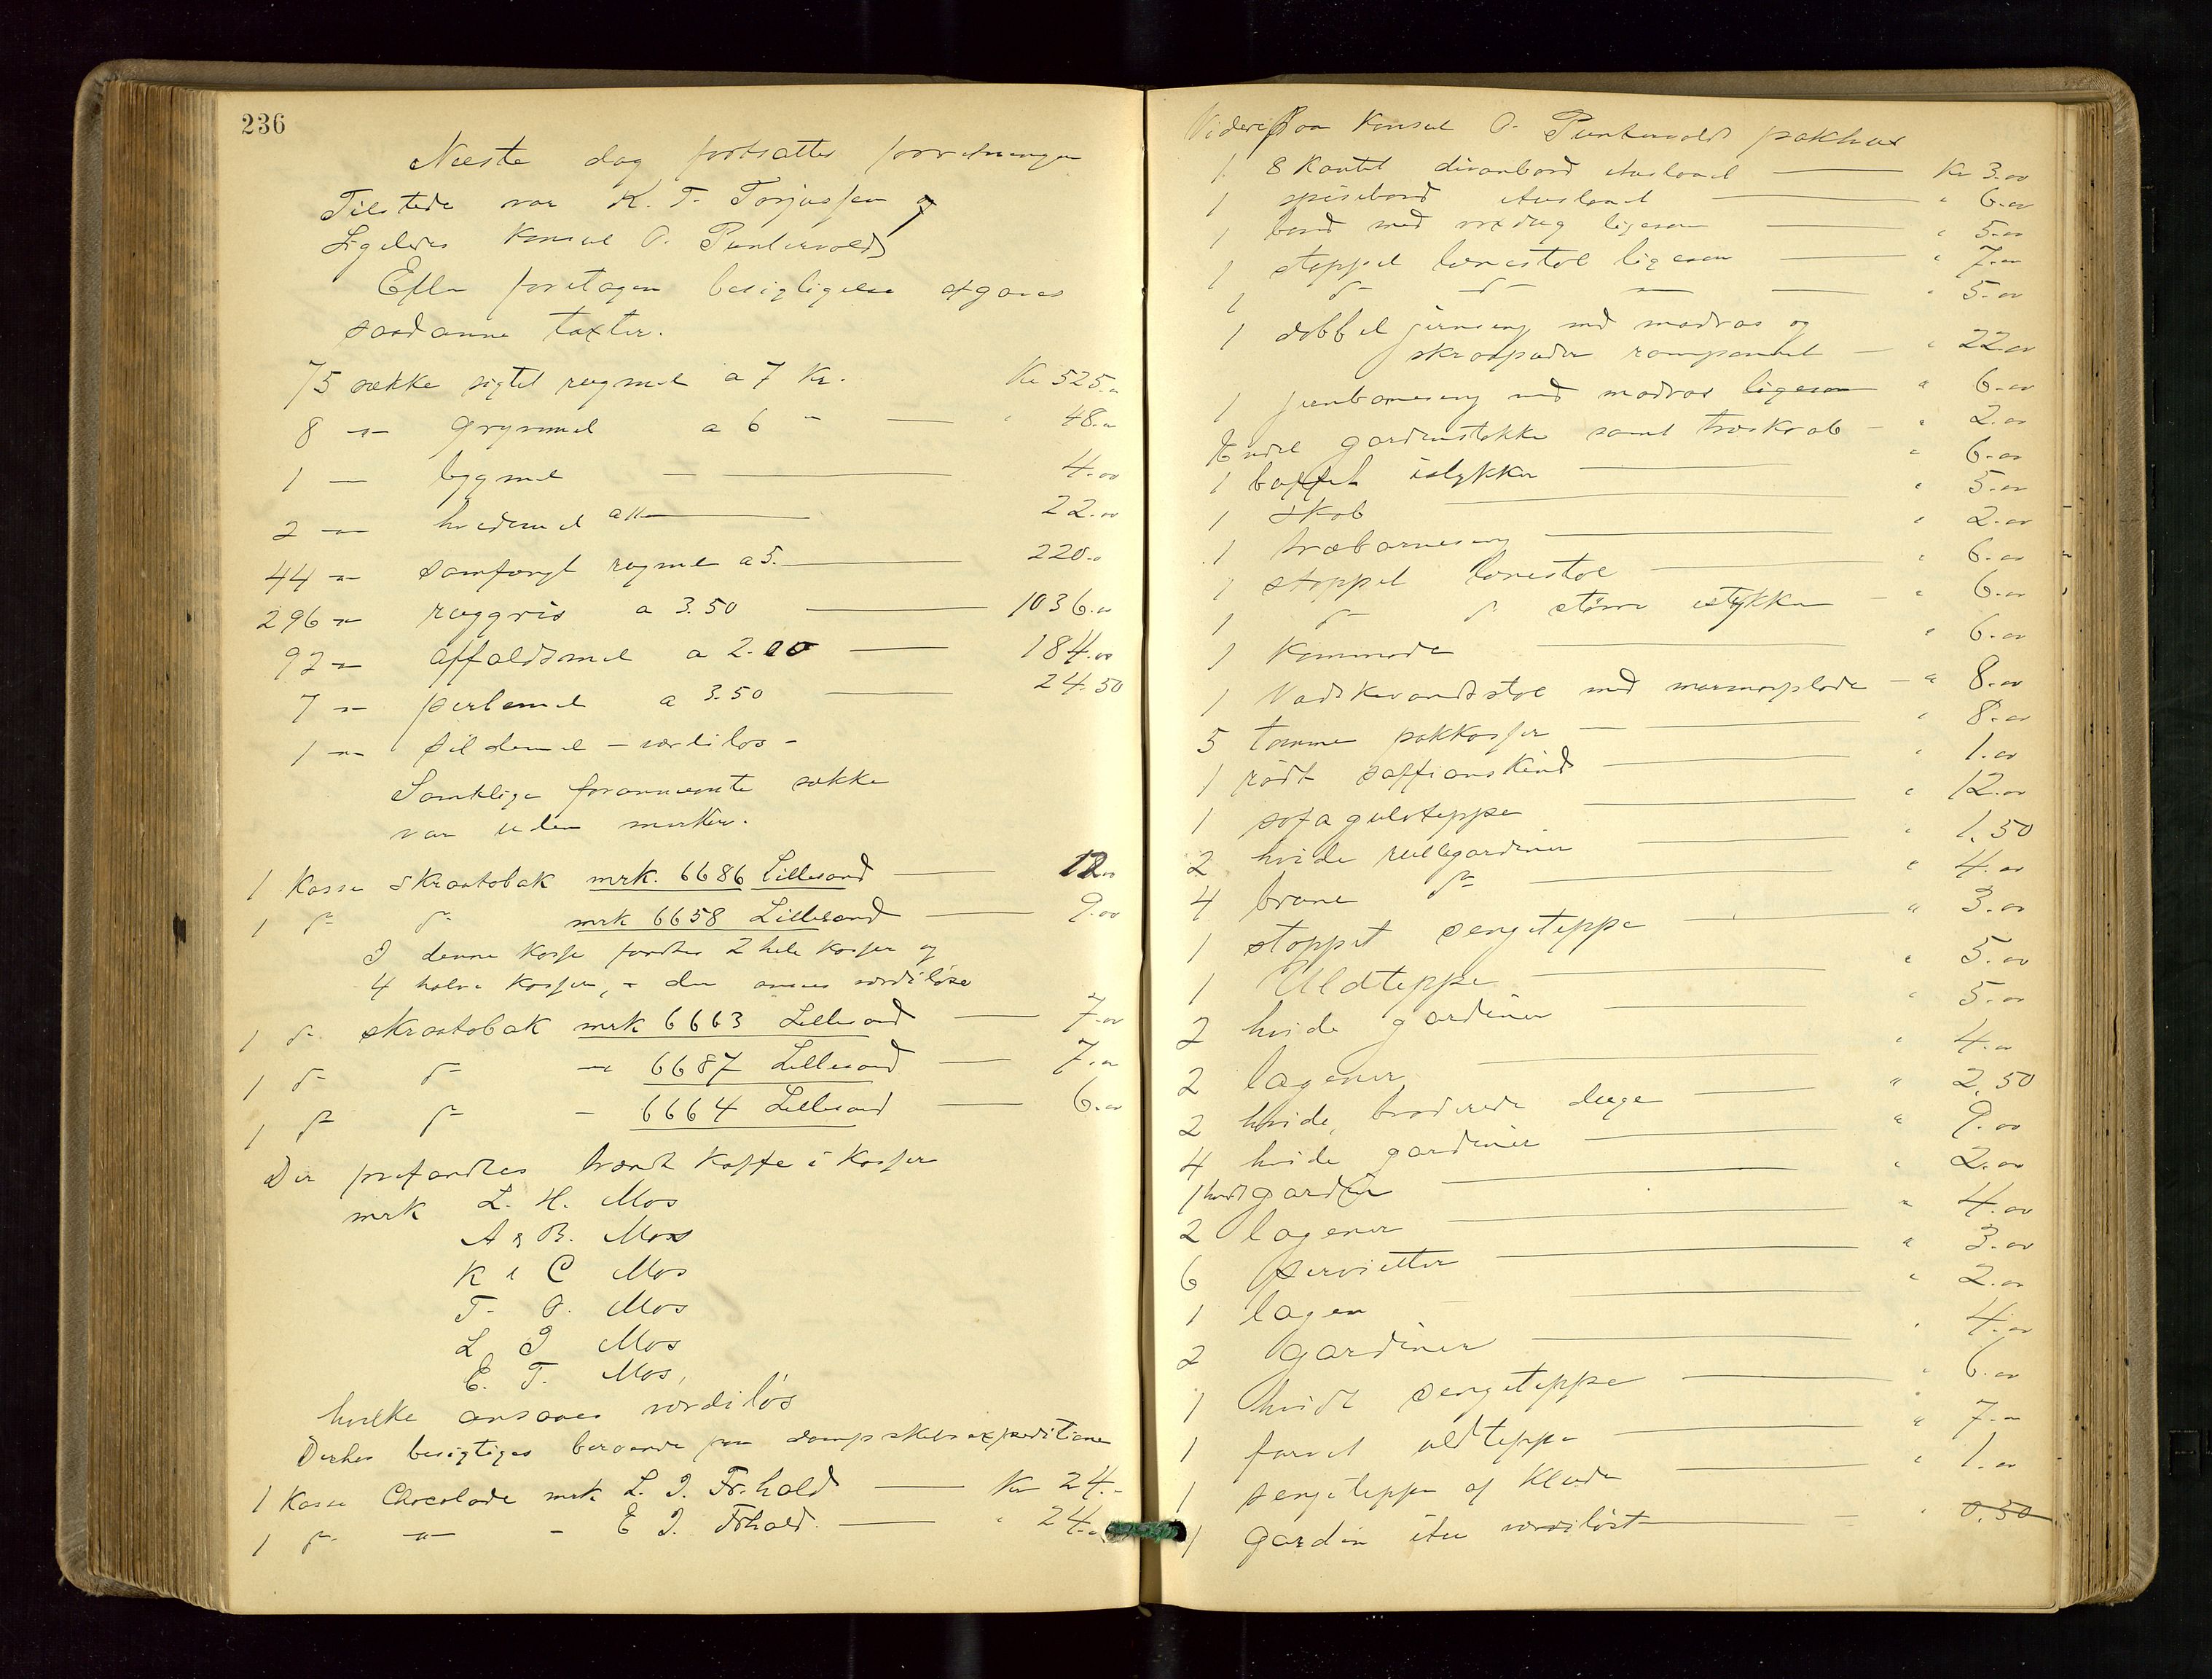 236
Næste dag fortsattes forretningen
Tilstede var K. T. Torjussen og
Ligeledes Konsul O. Puntervolds
Efter foretagen besigtigelse afgaves
saadanne taxter.
75 sække sigtet rugmel a 7 Kr. Kr 525.-
8 -"- grynmel a 6 " — " 48.-
1 — bygmel — — 4.00
2 -"- hvedemel a 11 — 22.00
44 -"- samfængt rugmel a 5. — 220.-
296 -"- ruggris a 3.50 — 1036.00
92 -"- affaldsmel a 2.00 — 184.00
7 -"- perlemel a 3.50 — 24.50
1 -"- sildemel - værdiløs -
Samtlige forannævnte sække
var uden merker.
1 Kasse Skraatobak mrk. 6686 Lillesand — 12.00
1 do do mrk 6658 Lillesand — 9.00
I denne Kasse fandtes 2 hele Kasser og
4 halve Kasser, - den ansees værdiløse
1 do skraatobak mrk 6663 Lillesand — 7.00
1 do do -"- 6687 Lillesand — 7.00
1 do do - 6664 Lillesand — 6.00
Der forefandtes brændt Kaffe i Kasser
mrk L. H. Mos
A & B. Mos
K & C Mos
T. O. Mos
L I Mos
E. T. Mos,
hvilke ansaaes værdiløs
Derhos besigtiges beroende paa dampskibsexpeditionen
1 Kasse Chocolade mrk L. I. Fr.hald — Kr 24.-
1 do -"- - E I. Frhald. — " 24.-
Videre paa Konsul O. Puntervolds pakhus
1 8 Kantet divanbord — Kr 3.00
1 spisebord — " 6.00
1 bord med voxdug ligesaa — " 5.00
1 stoppet lænestol ligesaa — " 7.00
1 do do — — " 5.00
1 dobbel jernseng med madras og
skraapuder ramponeret — " 22.00
1 jernbarneseng med madras ligesaa " 6.00
Endel gardinstokke samt træskrab — " 2.00
1 buffet istykker — " 6.00
1 skab — " 5.00
1 træbarneseng — " 2.00
1 stoppet lænestol — " 6.00
1 do do større istykker — " 6.00
1 Kommode — " 6.00
1 Vadskevandstol med marmorplade — " 8.00
5 tomme pakkasser — " 8.00
1 rødt saffianskind — " 1.00
1 sofa gulvteppe — " 12.00
2 hvide rullegardiner — " 1.50
4 brune do — " 4.00
1 stoppet sengeteppe — " 3.00
1 Uldteppe — " 5.00
2 hvide gardiner — " 5.00
2 lagener — " 4.00
2 hvide, broderede duge — " 2.50
4 hvide gardiner — " 9.00
1 hvidt gardin — " 2.00
2 lagener — " 4.00
6 servietter — " 3.00
1 lagen — " 2.00
2 gardiner — " 4.00
1 hvidt sengeteppe — " 6.00
1 farvet uldteppe — " 7.00
1 sengeteppe af Klude — " 1.00
1 gardin itu værdiløst — " 0.50